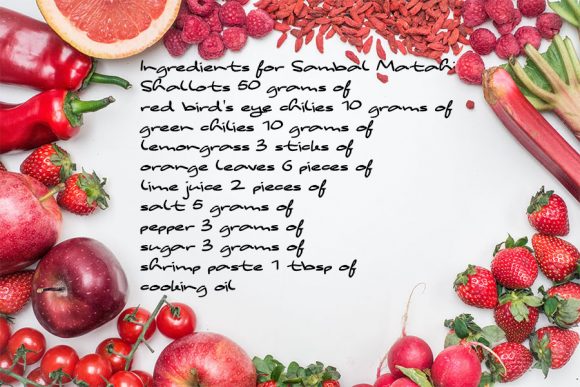 Ingredients for Sambal Matah:
Shallots 50 grams of
red bird's eye chilies 10 grams of
green chilies 10 grams of
lemongrass 3 sticks of
orange leaves 6 pieces of
lime juice 2 pieces of
salt 5 grams of
pepper 3 grams of
sugar 3 grams of
shrimp paste 1 tbsp of
cooking oil